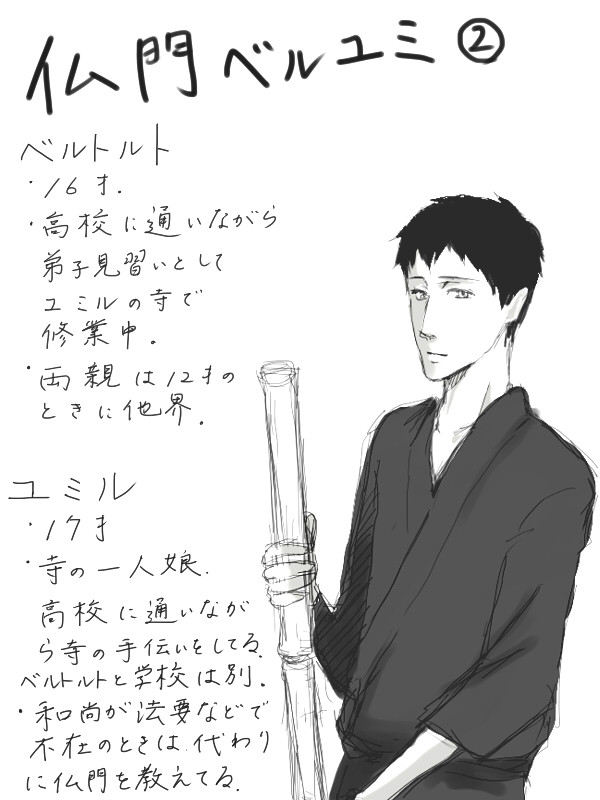 仏門ベルユミ②
ベルトルト
・16才.
・高校に通いながら
弟子見習いとして
ユミルの寺で
修業中。
・両親は12才の
ときに他界.
ユミル
・17才
・寺の一人娘.
高校に通いなが
ら寺の手伝いをしてる.
ベルトルトと学校は別.
・和尚が法要などで
不在のときは代わり
に仏門を教えてる.